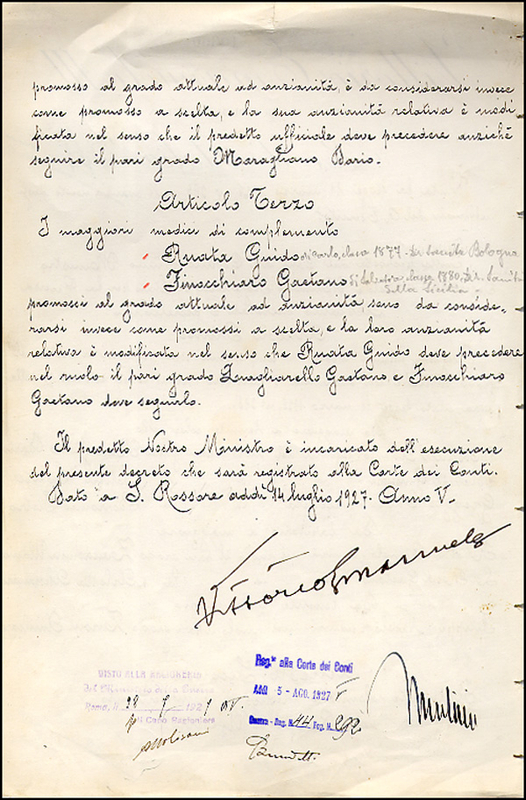 promosso al grado attuale ad anzianità, è da considerarsi invece
come promosso a scelta, e la sua anzianità relativa è modi
ficata nel senso che il predetto ufficiale deve precedere anzichè
seguire il pari grado Maragliano Dario.
Articolo Terzo
I maggiori medici di complemento
Ruata Guido di Carlo, classe 1877. Dir. Sanità Bologna
Finocchiaro Gaetano di Salvatore classe 1880. Dir. Sanità
della Sicilia
promossi al grado attuale ad anzianità, sono da conside-
rarsi invece come promossi a scelta, e la loro anzianità
relativa è modificata nel senso che Ruata Guido deve precedere
nel ruolo il pari grado Quagliarello Gaetano, e Finocchiaro
Gaetano deve seguirlo.
Il predetto Nostro Ministro è incaricato dell'esecuzione
del presente decreto che sarà registrato alla Corte dei Conti.
Dato a S. Rossore addì 14 luglio 1927. Anno V-
Vittorio Emanuele
Reg.to alla Corte dei Conti
Addì 5 - AGO. 1927 V
Guerra - Reg. N. 44 Fog. N. 292
VISTO ALLA RAGIONERIA
Roma, li 28 7 1927
Il Capo Ragioniere
Mussolini